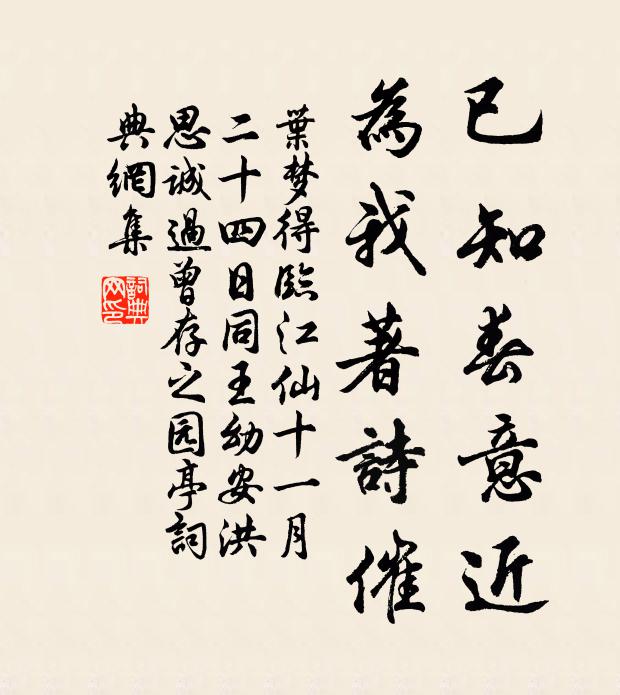 已知春意近
為我著詩催
葉梦得臨江仙十一月
二十四日同王幼安洪
思誠過曾存之园亭詞
典網集
詞典
网印